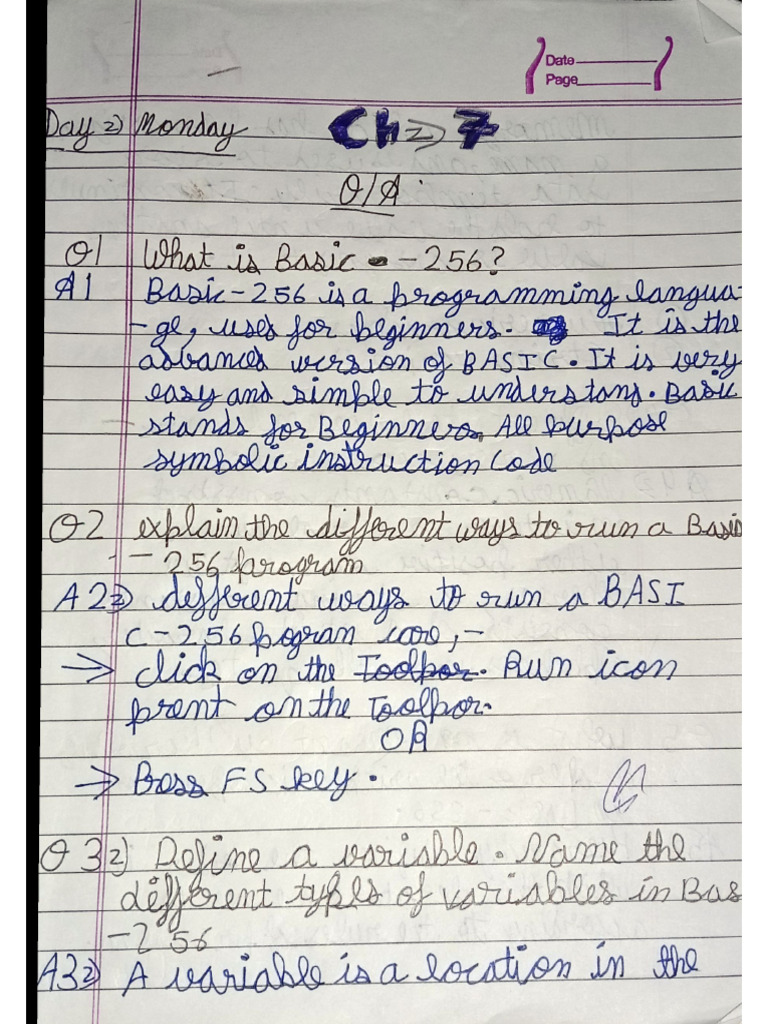 Date
Page
Day 2) Monday Ch => 7
Q/A
Q1 What is Basic - - 256?
A1 Basic-256 is a programming langua-
-ge, uses for beginners. It is the
advanced version of BASIC. It is very
easy and simple to understand. Basic
stands for Beginners All purpose
symbolic instruction Code
Q2 explain the different ways to run a Basic
- 256 program
A2=) different ways to run a BASI
C-256 pogran are,-
=> click on the Toolpor. Run icon
prent on the Toolpor.
OR
=> Bress F5 key.
Q3=) Define a variable. Name the
different types of variables in Bas
-256
A3=) A variable is a location in the